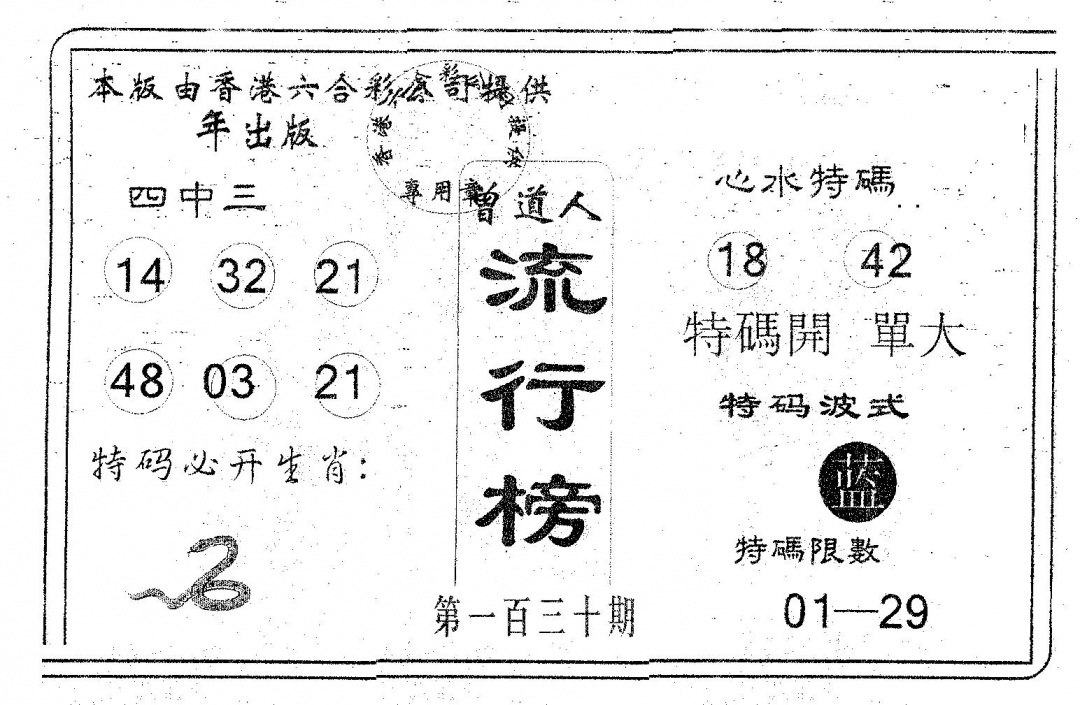 本版由香港六合彩會訂提供
年出版
四中三
14 32 21
48 03 21
特码必开生肖:
專用章
曾道人
流行榜
第一百三十期
心水特碼
18 42
特碼開 單大
特码波式
蓝
特碼限數
01—29